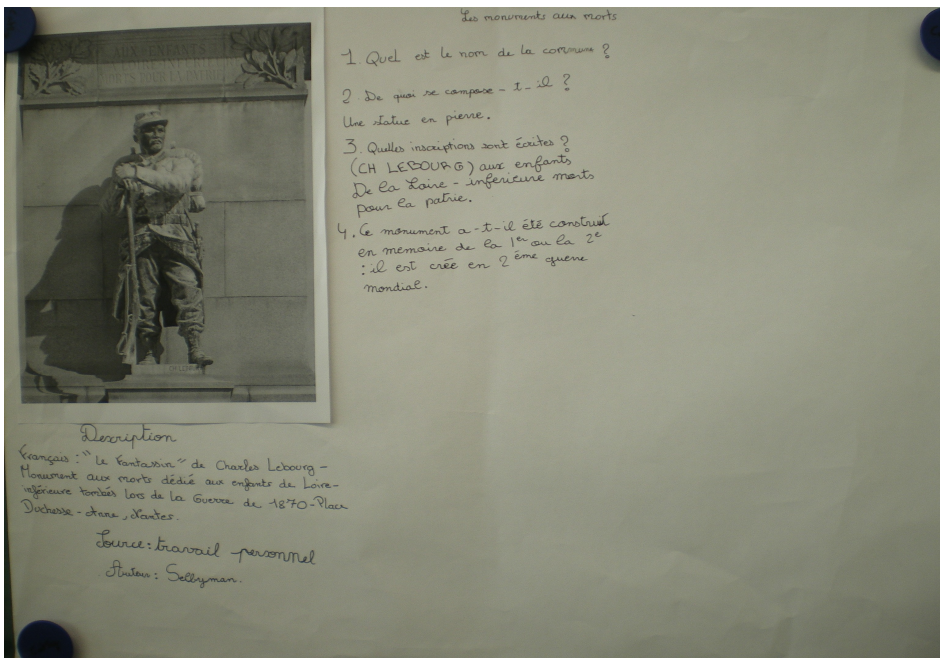 Les monuments aux morts
1. Quel est le nom de la commune ?
2. De quoi se compose-t-il ?
Une statue en pierre.
3. Quelles inscriptions sont écrites ?
(CH LEBOURG) aux enfants
De la Loire-inférieure morts
pour la patrie.
4. Ce monument a-t-il été construit
en memoire de la 1er ou la 2e
: il est crée en 2ème guerre
mondial.
AUX ENFANTS
MORTS POUR LA PATRIE
Description
Français : "Le Fantassin" de Charles Lebourg-
Monument aux morts dédié aux enfants de Loire-
inférieure tombés lors de la Guerre de 1870-Place
Duchesse-Anne, Nantes.
Source : travail personnel
Auteur : Selbyman.